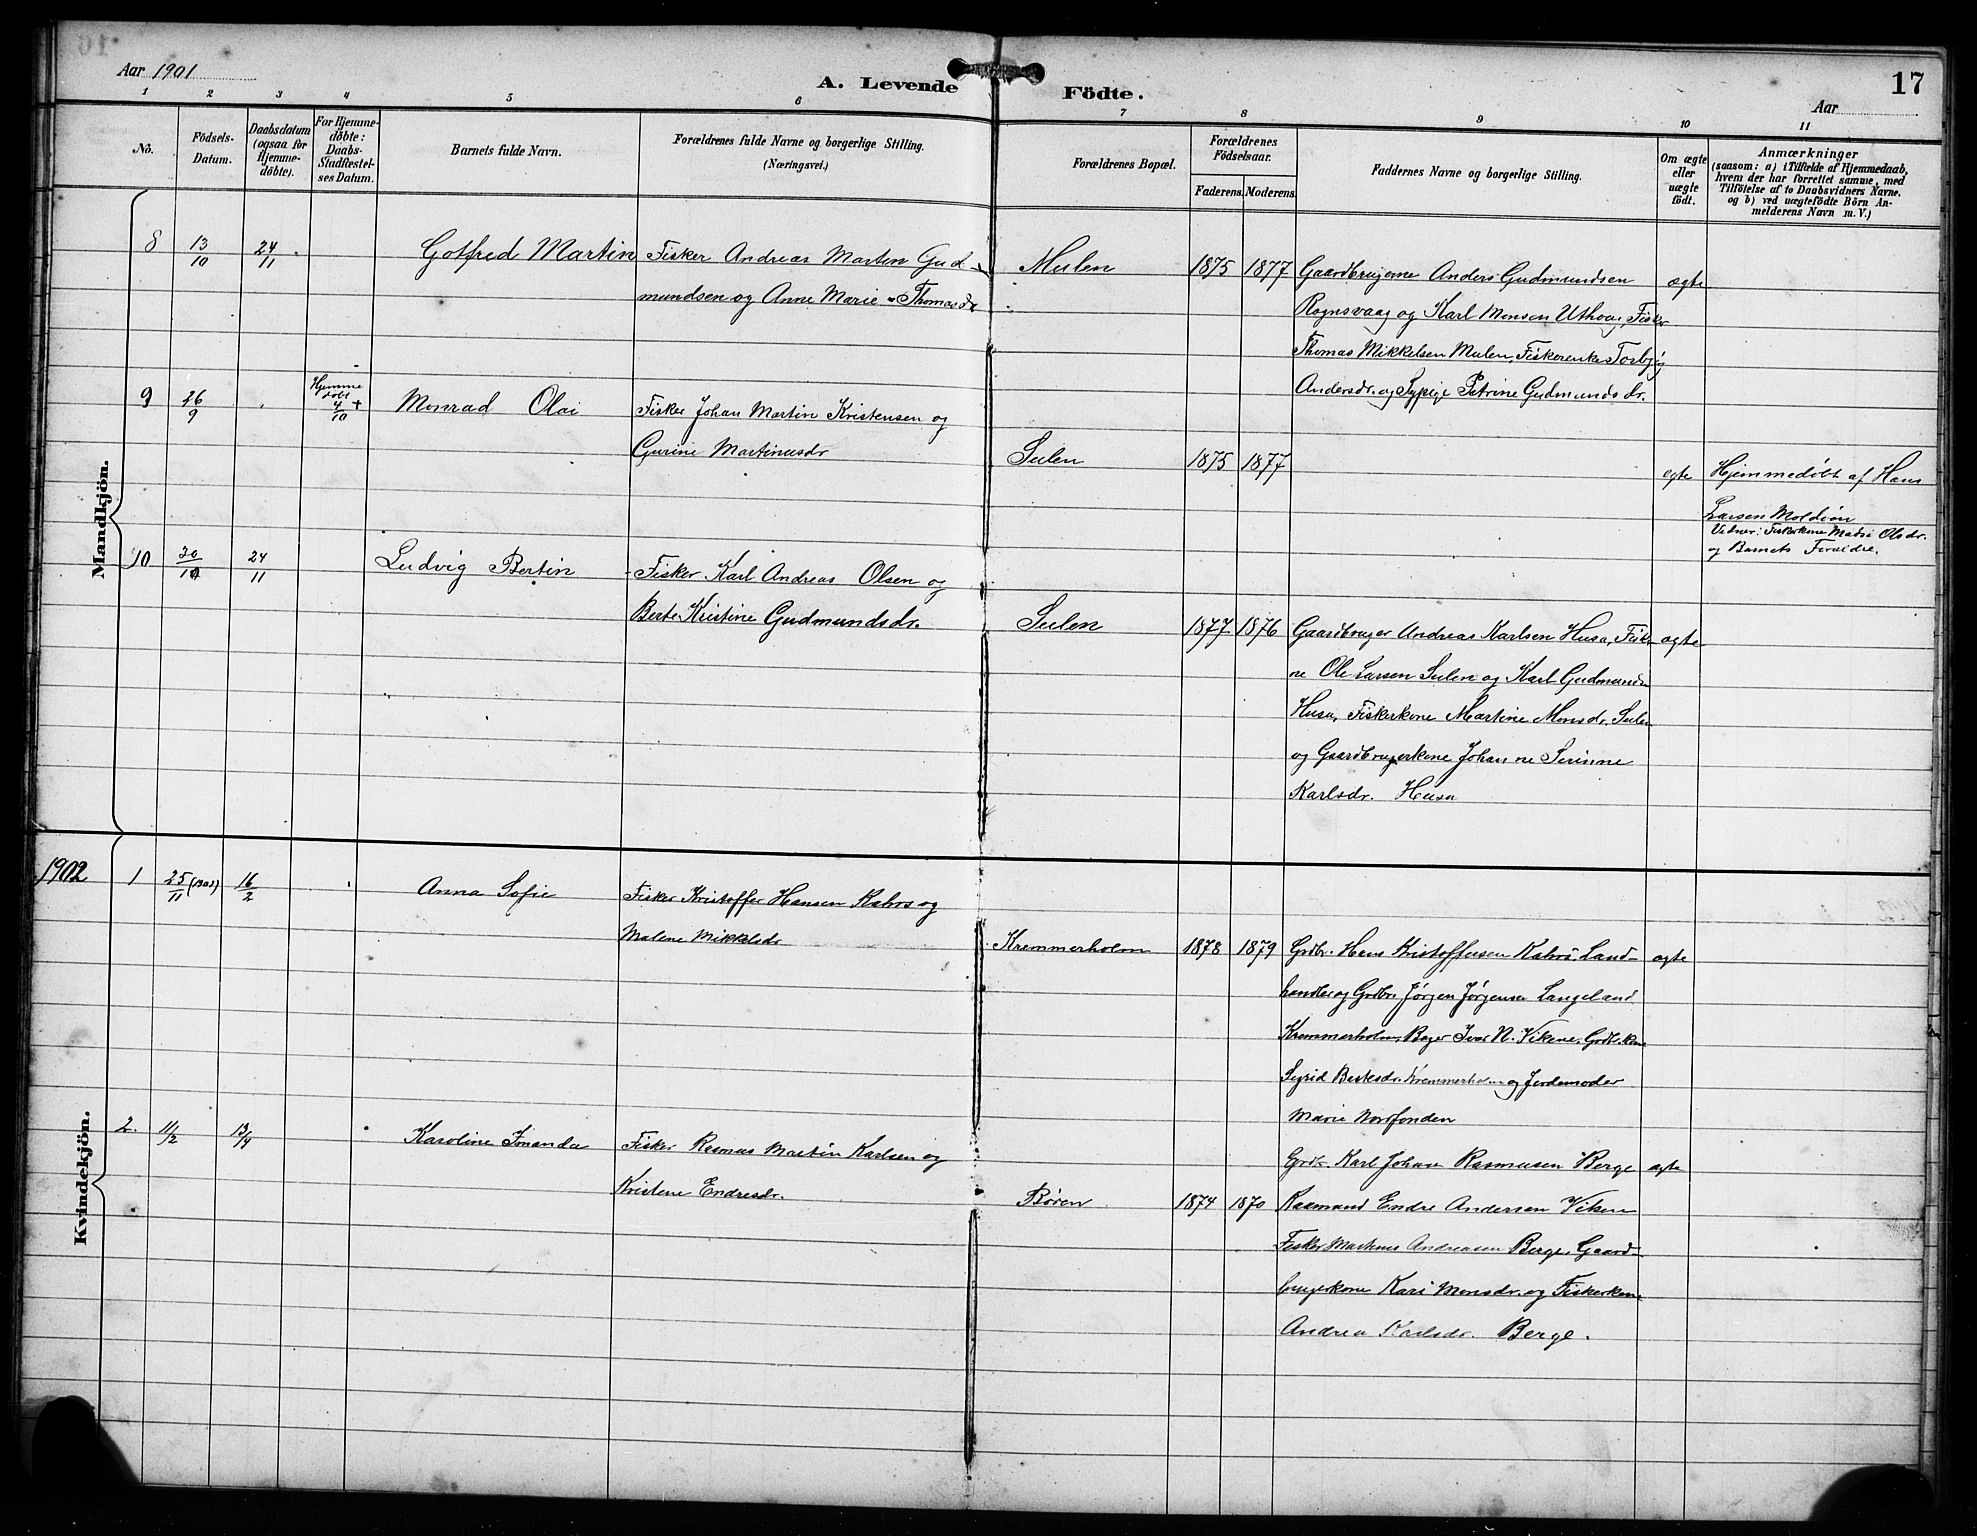 Aar 1901
A. Levende Födte.
17
Aar
1 2 3 4 5 6 7 8 9 10 11
No.
Födsels-
Datum.
Daabsdatum
(ogsaa for
Hjemme-
döbte).
For Hjemme-
döbte:
Daabs-
Stadfæstel-
ses Datum.
Barnets fulde Navn.
Forældrenes fulde Navne og borgerlige Stilling.
(Næringsvei.)
Forældrenes Bopæl.
Forældrenes
Födselsaar.
Faderens. Moderens.
Faddernes Navne og borgerlige Stilling.
Om ægte
eller
uægte
födt.
Anmærkninger
(saasom: a) i Tilfælde af Hjemmedaab,
hvem der har forrettet samme, med
Tilföielse af to Daabsvidners Navne.
og b) ved uægtefödte Börn An-
melderens Navn m. V.)
Mandkjön.
8 13/10 24/11 Gotfred Martin Fisker Andreas Martin Gud-
mundsen og Anne Marie Thomasdr
Mulen 1875 1877 Gaardbrugerne Anders Gudmundsen ægte
Rognsvaag og Karl Monsen Uthoug, Fisker
Thomas Mikkelsen Mulen, Fiskerenke Torbjør
Andersdr. og Sypige Petrine Gudmundsdr.
9 26/9 Hjemme
døbt 4/10 + Monrad Olai Fisker Johan Martin Kristensen og
Gurine Martinusdr
Sulen 1875 1877 egte Hjemmedøbt af Hans
Larsen Moldøen
Vidner: Fiskerkone Olsdr.
og Barnets Forældre.
10 24/11 Ludvig Bertin Fisker Karl Andreas Olsen og
Berte Kristine Gudmundsdr.
Sulen 1877 1876 Gaardbruger Andreas Karlsen Husa, Fisker- ægte
ne Ole Larsen Sulen og Karl Gudmunds
Husa, Fiskerkone Martine Monsdr. Sulen
og Gaardbrugerkone Johanne Serinne
Karlsdr. Husa
1902
Kvindekjön.
1 25/11 (1901) 16/2 Anna Sofie Fisker Kristoffer Hansen Kalvø og
Malene Mikkelsdr
Kremmerholm 1878 1879 Grdbr. Hans Kristoffersen Kalvø, Land- ægte
handler og Grdbr. Jørgen Jørgensen Langeland
Kremmerholm, Ivar N. Vikene, Grdbr.kone
Sigrid Kremmerholm og Jordemoder
Marie
2. 11/2 13/4 Karoline Imanda Fisker Rasmus Martin Karlsen og
Kristene Endresdr.
Børen 1874 1870
Grdb. Karl Johan Rasmusen Berge ægte
Endre Andersen Viken
Fisker Martinus Andreasen Berge, Gaard-
brugerkone Kari Monsdr. og Fiskerkone
Andrea Karlsdr. Berge.